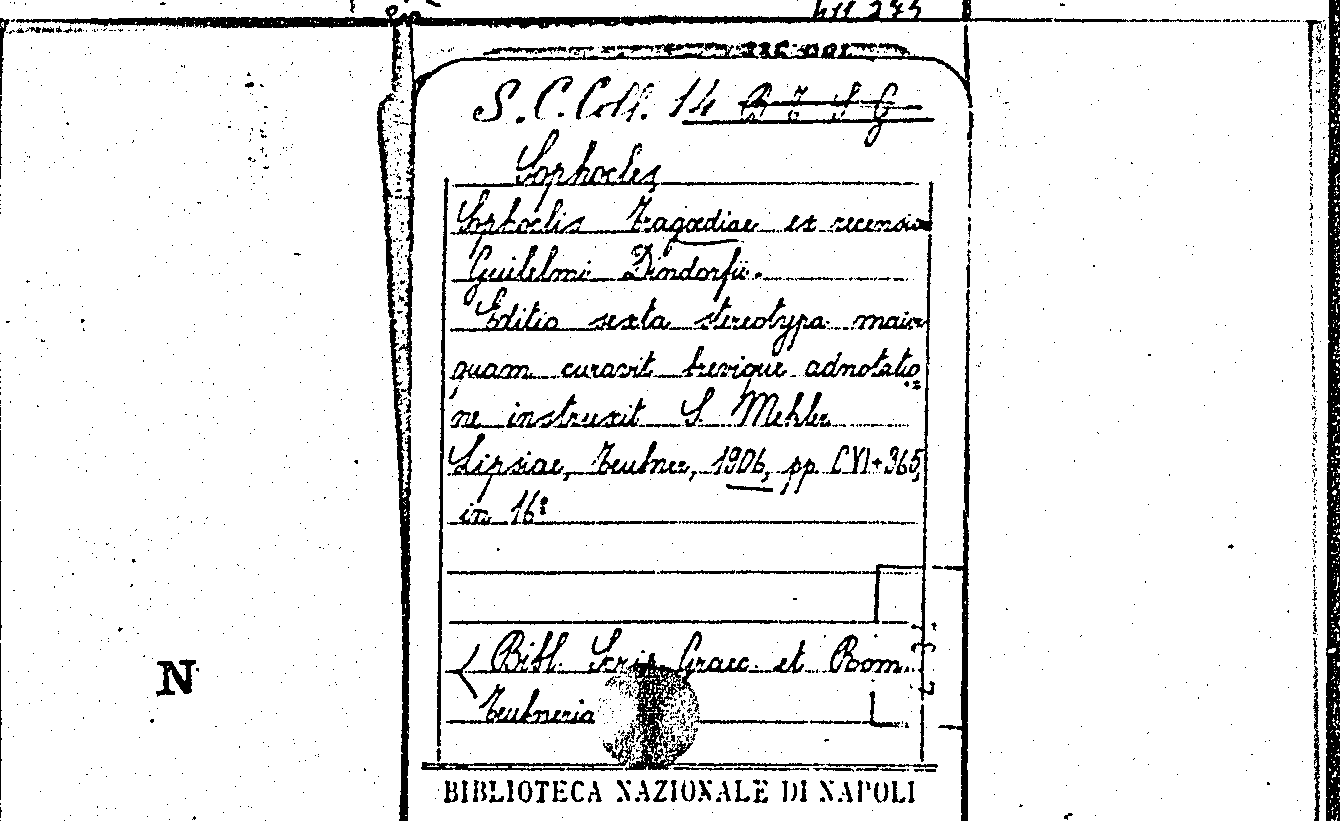 S. C. Coll. 14 B T S G
Sophocles
Sophoclis Tragoediae ex recensio
Guilelmi Dindorfii.
Editio sexta stereotypa maior
quam curavit brevique adnotatio
ne instruxit S. Mehler
Lipsiae, Teubner, 1906, pp. CVI+365,
in 16º
Bibl. Scrip. Graec. et Rom.
Teubneria
N
BIBLIOTECA NAZIONALE DI NAPOLI